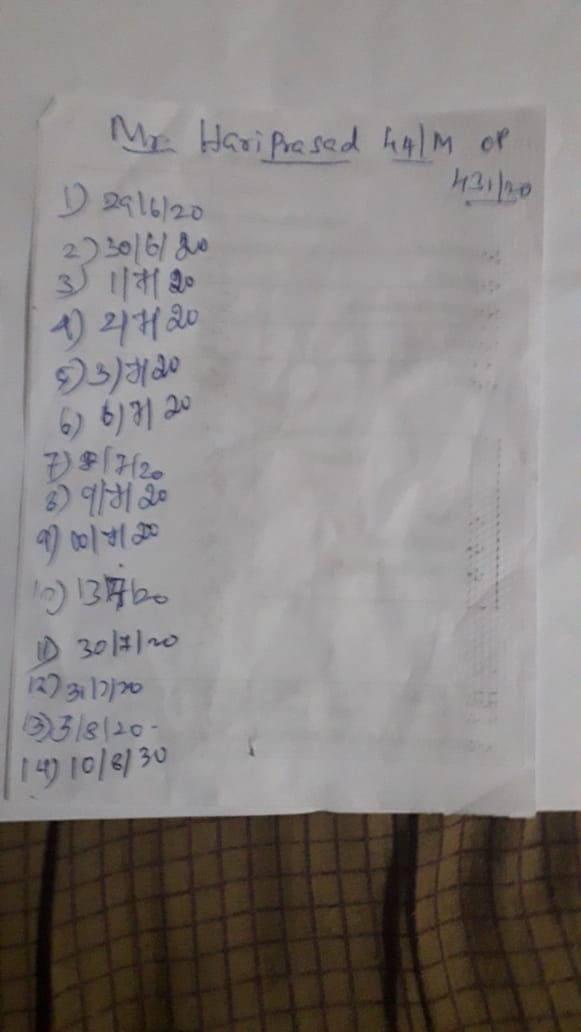 Mr. Hari Prasad 44/M OP
431/20
1) 29/6/20
2) 30/6/20
3) 1/7/20
4) 2/7/20
5) 3/7/20
6) 6/7/20
7) 8/7/20
8) 9/7/20
9) 10/7/20
10) 13/7/20
11) 30/7/20
12) 31/7/20
13) 3/8/20-
14) 10/8/30